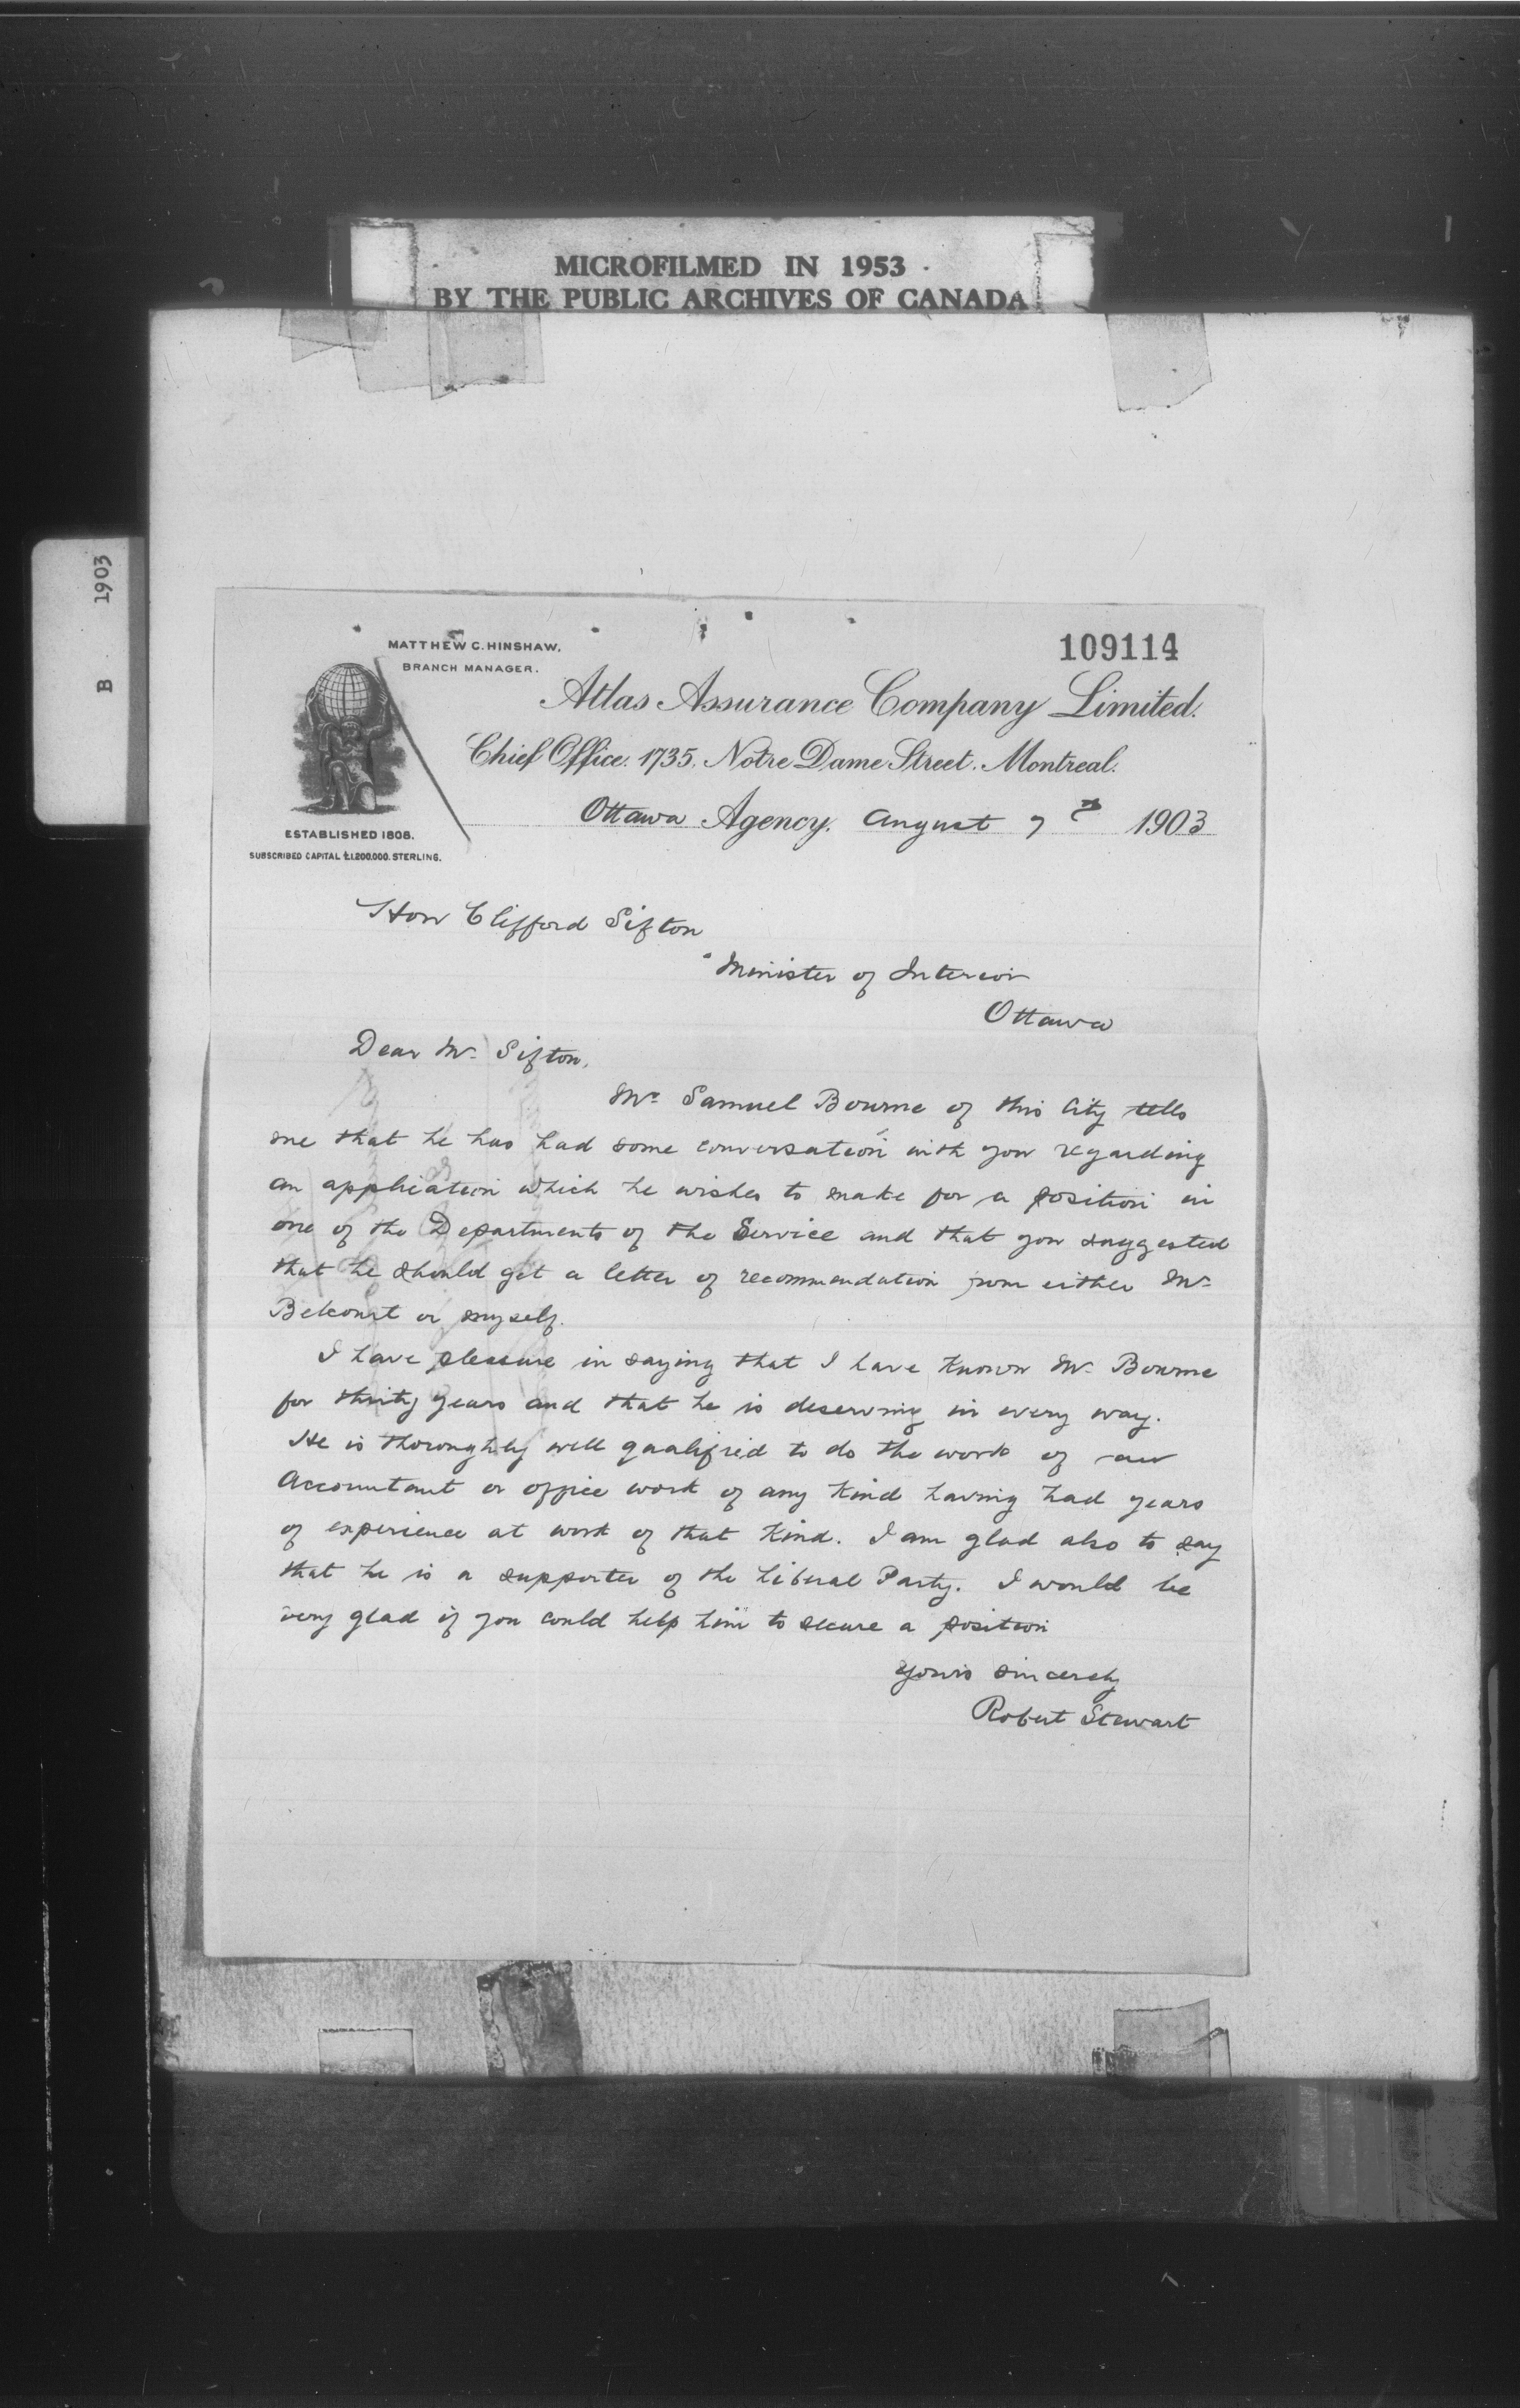 MICROFILMED IN 1953
BY THE PUBLIC ARCHIVES OF CANADA
B 1903
109114
MATTHEW C. HINSHAW,
BRANCH MANAGER.
Atlas Assurance Company Limited.
Chief Office. 1735. Notre Dame Street. Montreal.
Ottawa Agency. August 7th 1903
ESTABLISHED 1808.
SUBSCRIBED CAPITAL £1.200.000. STERLING.
Hon Clifford Sifton
Minister of Interior
Ottawa
Dear Mr. Sifton,
Mr Samuel Bourne of this City tells
me that he has had some conversation with you regarding
an application which he wishes to make for a position in
one of the Departments of the Service and that you suggested
that he should get a letter of recommendation from either Mr
Belcourt or myself.
I have pleasure in saying that I have known Mr Bourne
for thirty years and that he is deserving in every way.
He is thoroughly well qualified to do the work of an
Accountant or office work of any kind having had years
of experience at work of that kind. I am glad also to say
that he is a supporter of the Liberal Party. I would be
very glad if you could help him to secure a position
Yours sincerely
Robert Stewart